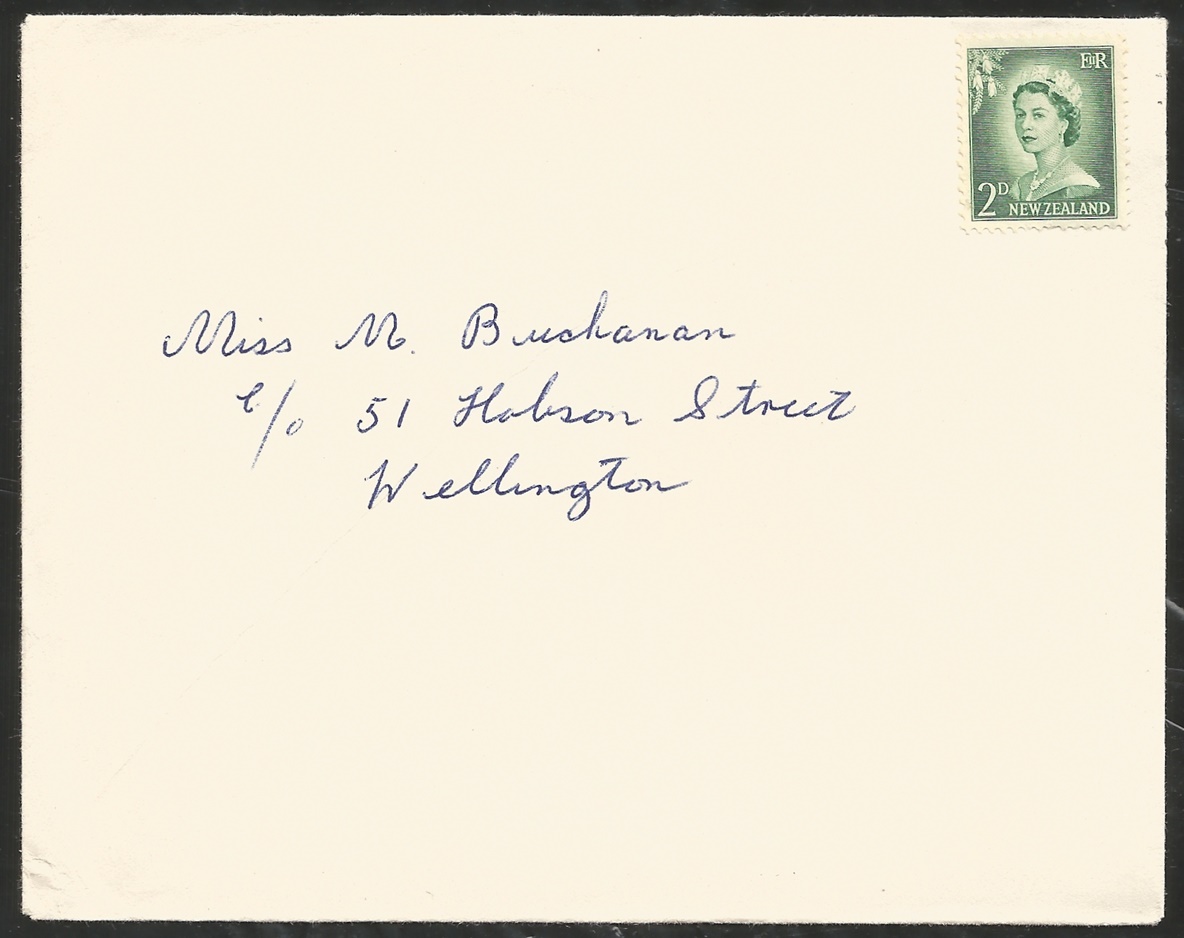 EIIR
2D NEW ZEALAND
Miss M. Buchanan
c/o 51 Hobson Street
Wellington